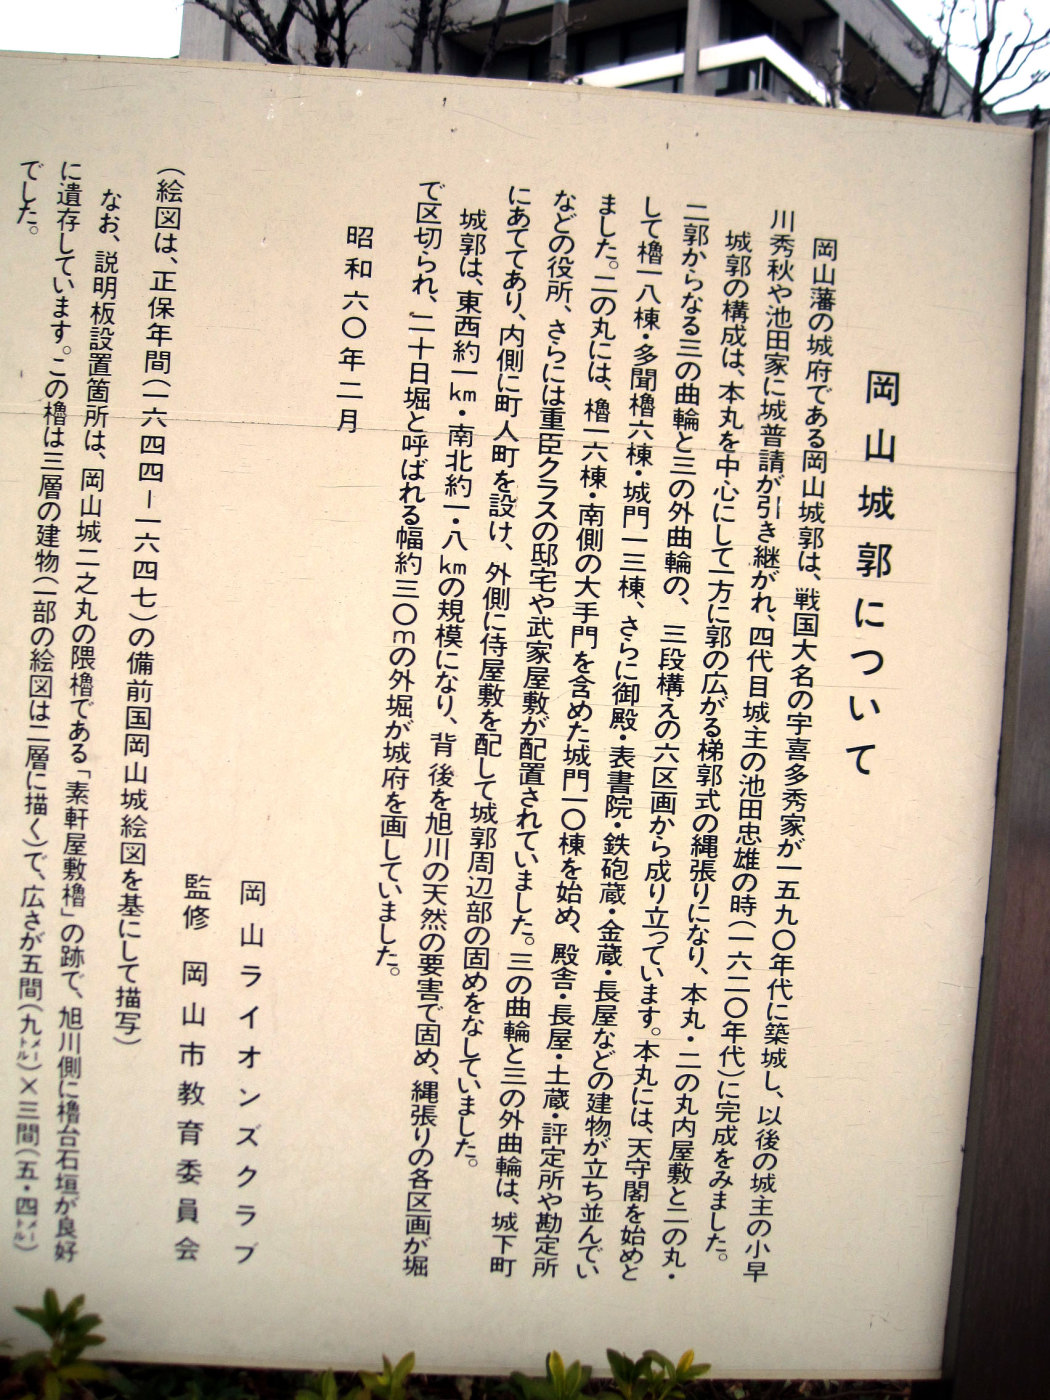 岡山城郭について
岡山藩の城府である岡山城郭は、戦国大名の宇喜多秀家が一五九〇年代に築城し、以後の城主の小早
川秀秋や池田家に城普請が引き継がれ、四代目城主の池田忠雄の時(一六二〇年代)に完成をみました。
城郭の構成は、本丸を中心にして一方に郭の広がる梯郭式の縄張りになり、本丸・二の丸内屋敷と二の丸・
二郭からなる三の曲輪と三の外曲輪の、三段構えの六区画から成り立っています。本丸には、天守閣を始めと
して櫓一八棟・多聞櫓六棟・城門一三棟、さらに御殿・表書院・鉄砲蔵・金蔵・長屋などの建物が立ち並んでい
ました。二の丸には、櫓一六棟・南側の大手門を含めた城門一〇棟を始め、殿舎・長屋・土蔵・評定所や勘定所
などの役所、さらには重臣クラスの邸宅や武家屋敷が配置されていました。三の曲輪と三の外曲輪は、城下町
にあててあり、内側に町人町を設け、外側に侍屋敷を配して城郭周辺部の固めをなしていました。
城郭は、東西約一km・南北約一・八kmの規模になり、背後を旭川の天然の要害で固め、縄張りの各区画が堀
で区切られ、二十日堀と呼ばれる幅約三〇mの外堀が城府を画していました。
昭和六〇年二月
岡山ライオンズクラブ
監修 岡山市教育委員会
(絵図は、正保年間(一六四四－一六四七)の備前国岡山城絵図を基にして描写)
なお、説明板設置箇所は、岡山城二之丸の隈櫓である「素軒屋敷櫓」の跡で、旭川側に櫓台石垣が良好
に遺存しています。この櫓は三層の建物(一部の絵図は二層に描く)で、広さが五間(九メートル)×三間(五・四メートル)
でした。